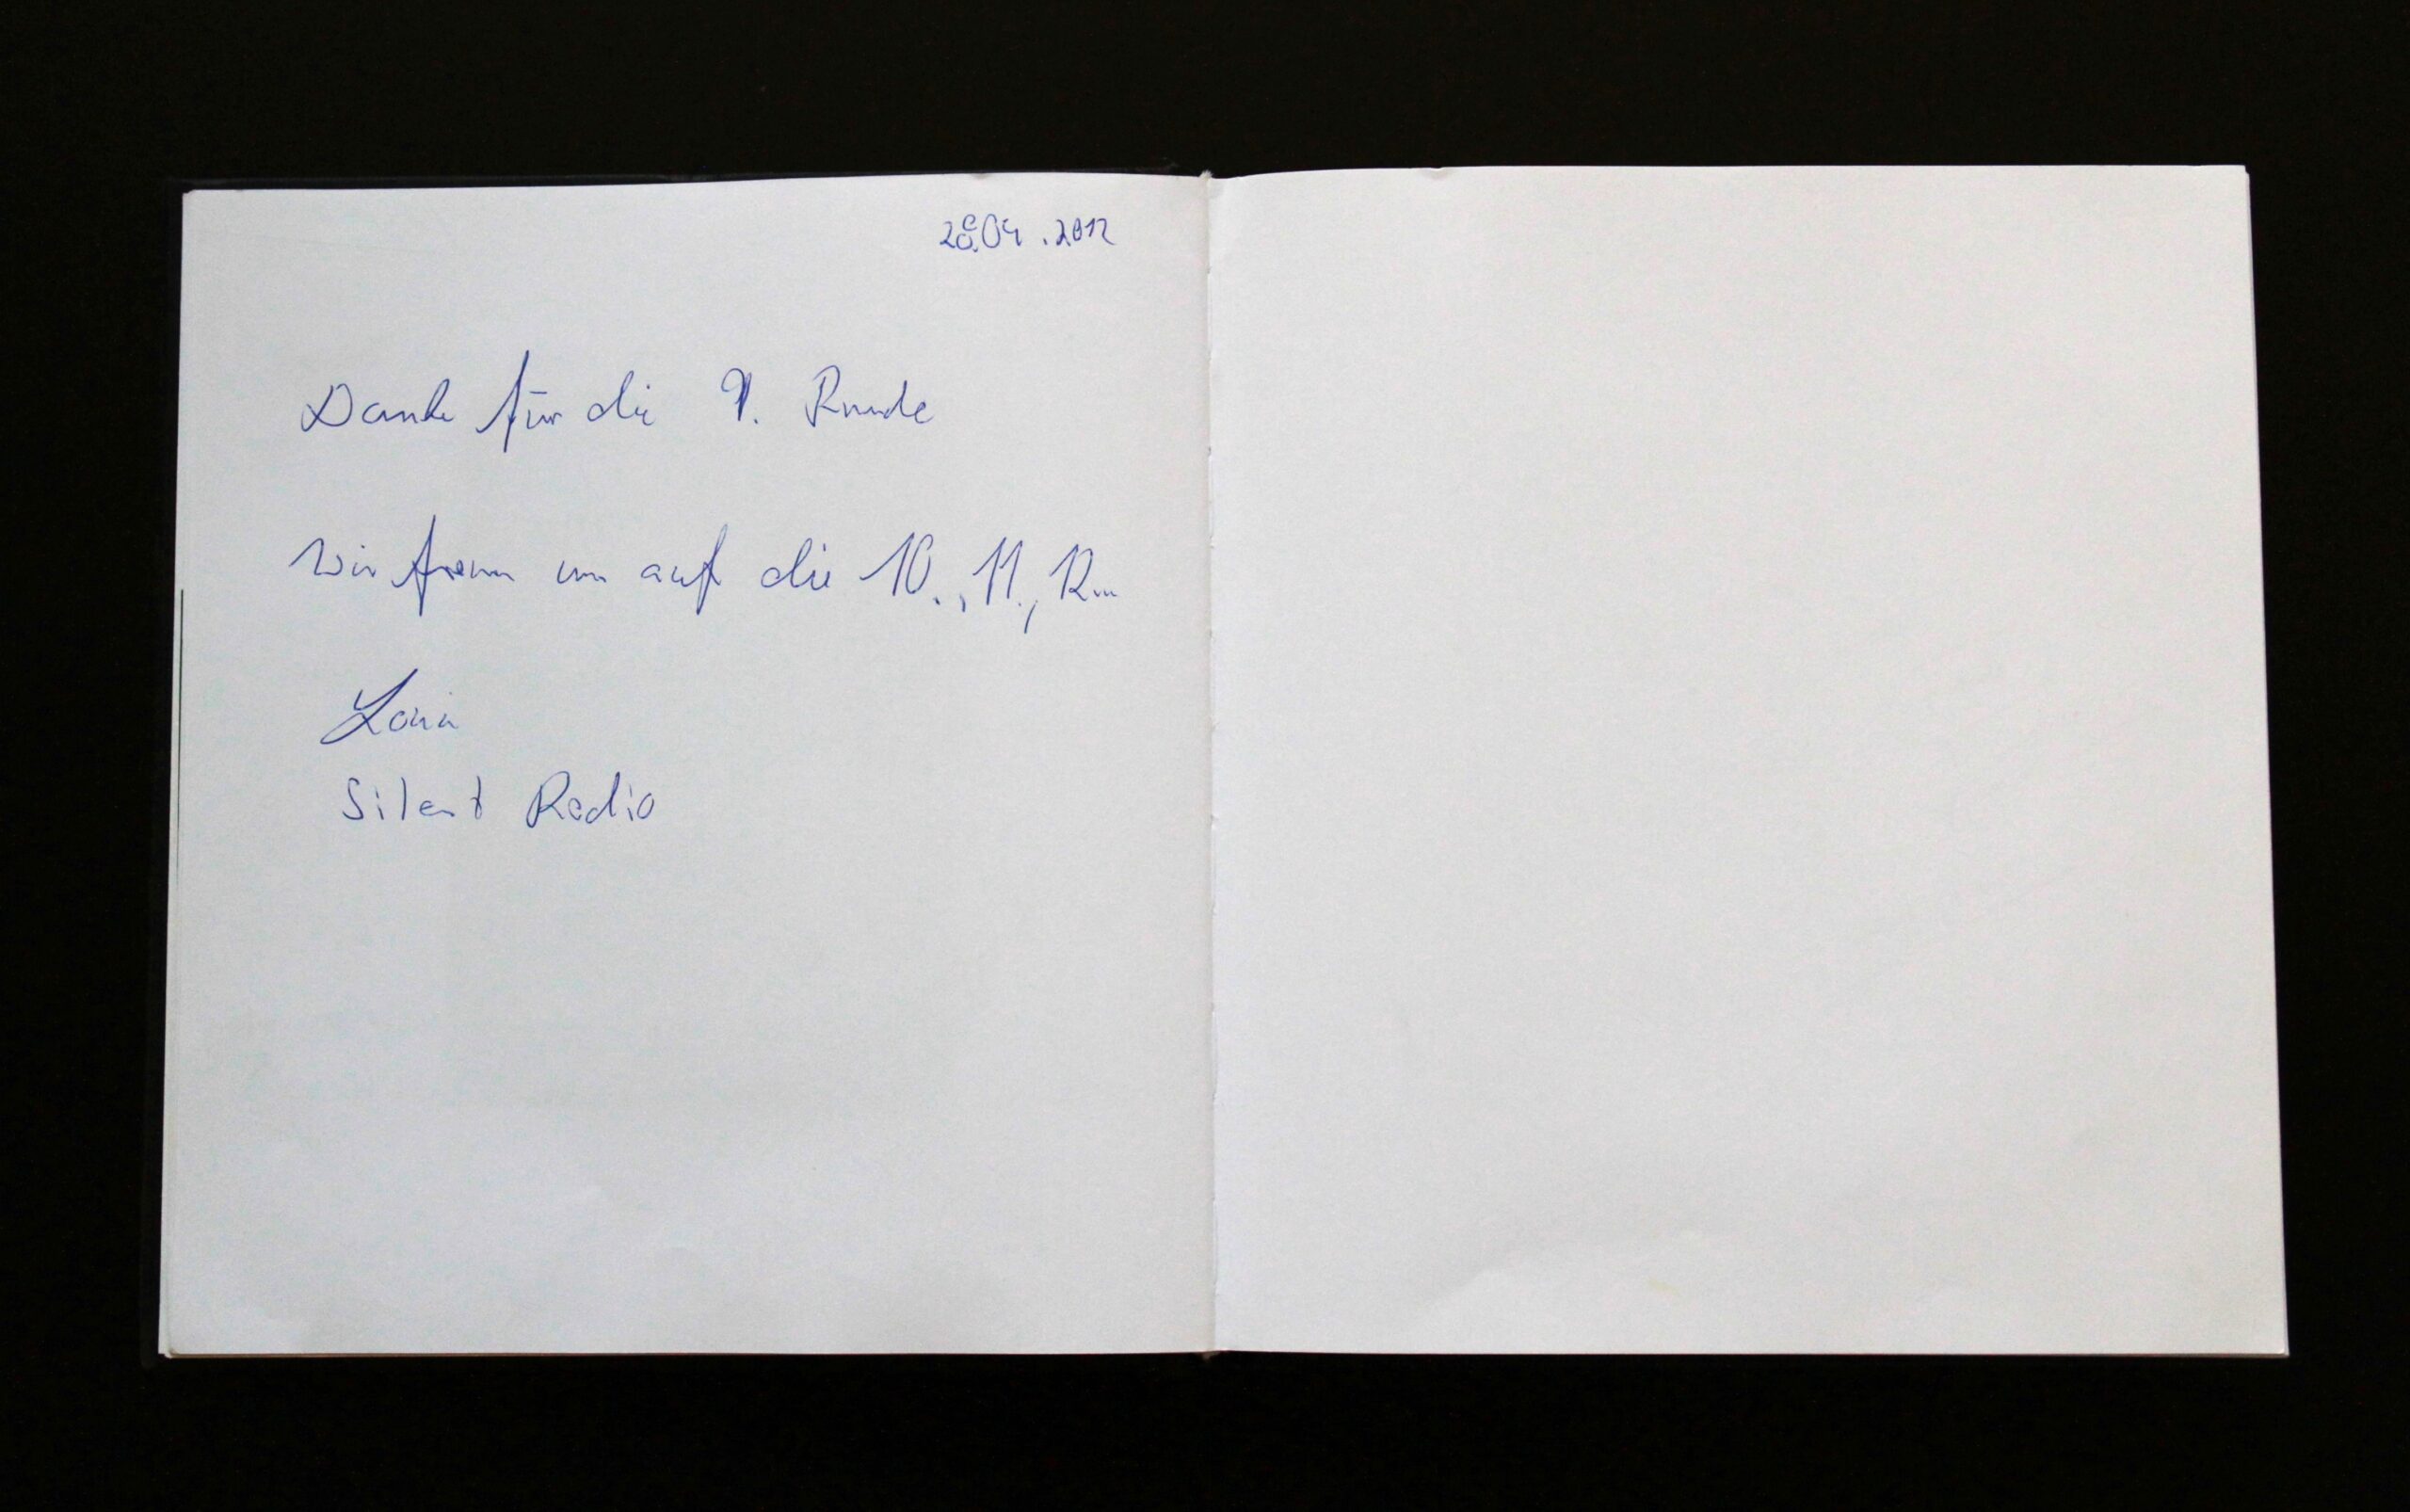 28.04.2012
Danke für die 9. Runde
Wir freuen uns auf die 10., 11., 12...
Silent Radio